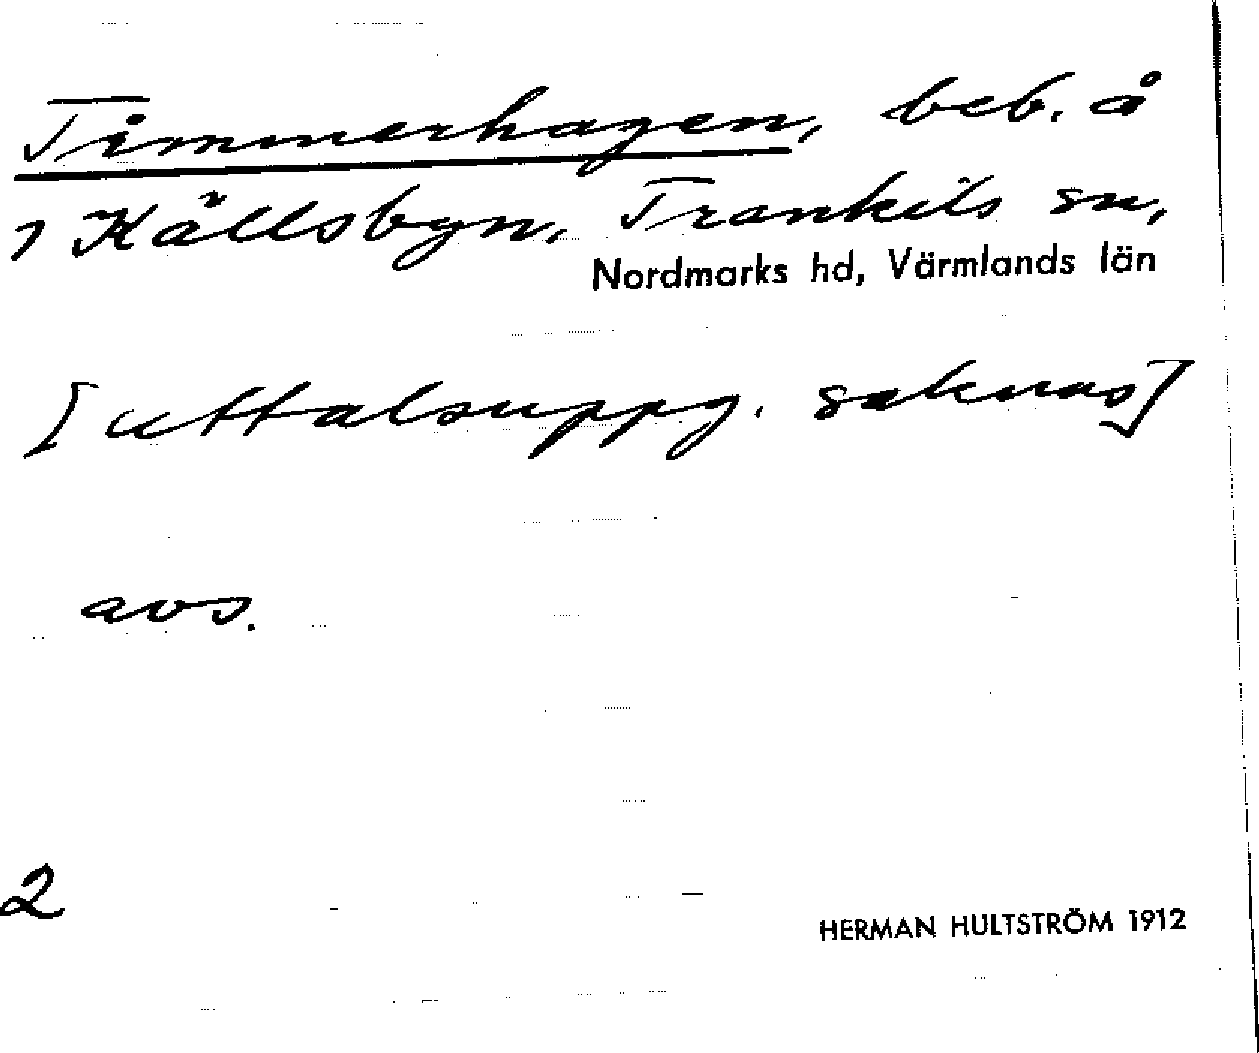 Timmerhagen, beb. å
1 Källsbyn, Trankils sn,
Nordmarks hd, Värmlands län
[uttalsuppg. saknas]
avs.
2
HERMAN HULTSTRÖM 1912